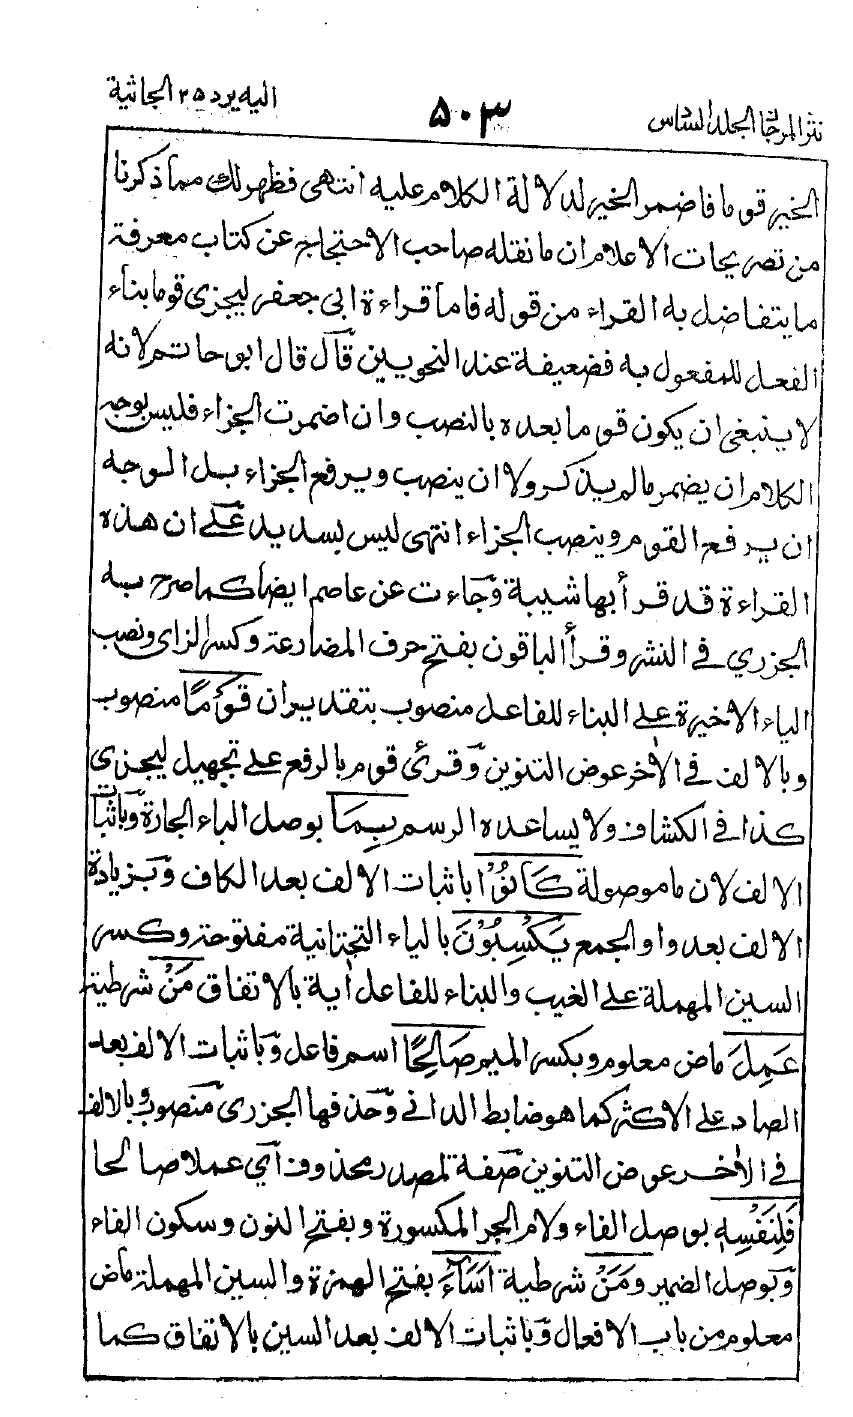 نثر المرجان المجلد السادس
٥٠٣
اليه يرد ٢٥ الجاثية
الخير قوما فاضمر الخير لدلالة الكلام عليه انتهى فظهر لك مما ذكرنا
من تصريحات الاعلام ان ما نقله صاحب الاحتجاج عن كتاب معرفة
ما يتفاضل به القراء من قوله فاما قراءة ابى جعفر ليجزى قوما بناء
الفعل للمفعول به فضعيفة عند النحويين قال قال ابو حاتم لانه
لا ينبغى ان يكون قوما بعده بالنصب وان اضمرت الجزاء فليس بوجه
الكلام ان يضمر ما لم يذكر ولا ان ينصب ويرفع الجزاء بل الوجه
ان يرفع القوم وينصب الجزاء انتهى ليس بسديد على ان هذه
القراءة قد قرأ بها شيبة وجاءت عن عاصم ايضا كما صرح به
الجزري في النشر وقرأ الباقون بفتح حرف المضارعة وكسر الزاى ونصب
الياء الاخيرة على البناء للفاعل منصوب بتقدير ان قَوْمًا منصوب
وبالالف في الأخر عوض التنوين وقرئ قوم بالرفع على تجهيل ليجزى
كذا في الكشاف ولا يساعده الرسم بِمَا بوصل الباء الجارة وباثبات
الالف لان ما موصولة كَانُوْا باثبات الالف بعد الكاف وبزيادة
الالف بعد واو الجمع يَكْسِبُوْنَ بالياء التحتانية مفتوحة وكسر
السين المهملة على الغيب والبناء للفاعل أية بالاتفاق مَنْ شرطية
عَمِلَ ماض معلوم وبكسر الميم صَالِحًا اسم فاعل وباثبات الالف بعد
الصاد على الاكثر كما هو ضابط الدانى وحذفها الجزرى منصوب وبالالف
في الأخر عوض التنوين صفة لمصدر محذوف أي عملا صالحا
فَلِنَفْسِهٖ بوصل الفاء ولام الجر المكسورة وبفتح النون وسكون الفاء
وبوصل الضمير وَمَنْ شرطية اَسَآءَ بفتح الهمزة والسين المهملة ماض
معلوم من باب الافعال وباثبات الالف بعد السين بالاتفاق كما